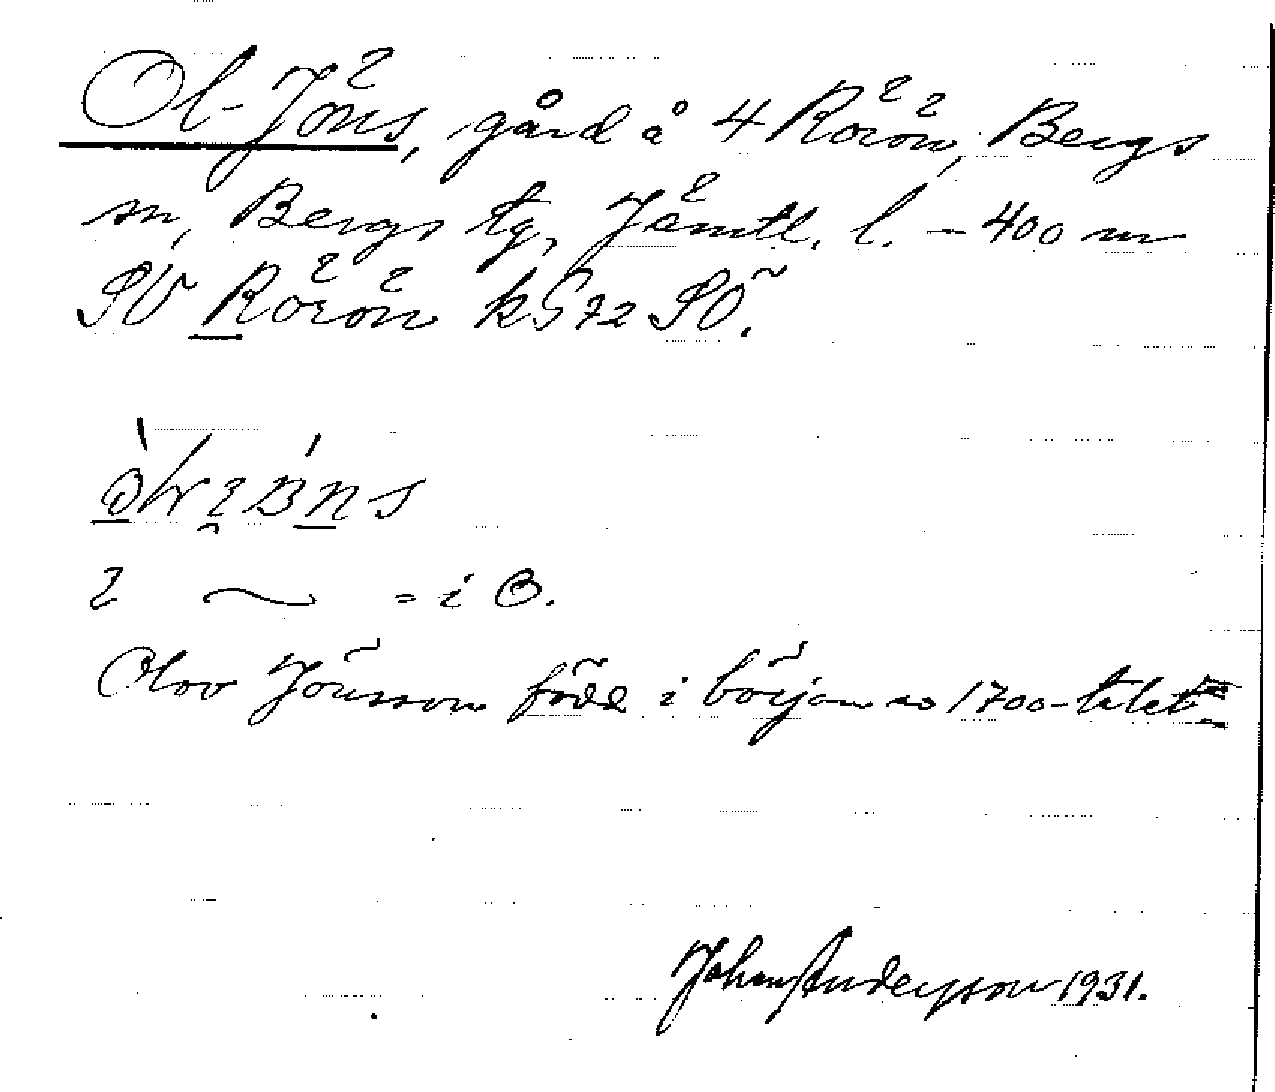 Ol-Jöns, gård å 4 Rörön, Bergs
sn, Bergs tg, Jämtl. l. - 400 m
SV Rörön kG72 SÖ.
= i
Olov Jönsson född i början av 1700-talet
Johan Andersson 1931.